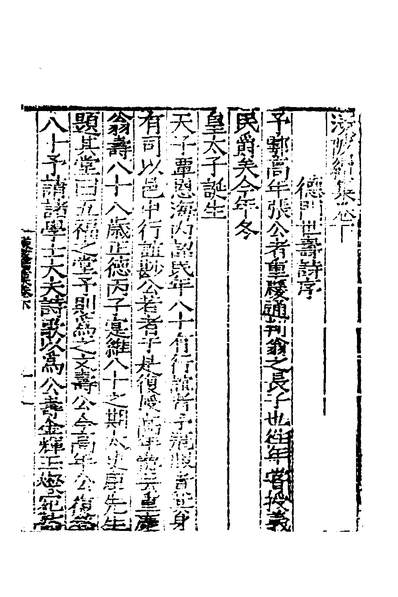 德門世壽詩序
予鄠高年張公者重慶通判翁之長子也往年嘗授義
民爵矣今年冬
皇太子誕生
天子覃恩海內詔民年八十有行誼者予冠服者世身
有司以邑中行誼尠公者者于是復授高年云重慶
翁壽八十八歲正德丙子寔維八十之期太史康先生
題其堂曰五福之堂予則為之文壽公今高年公復登
八十予請諸學士大夫詩歌以為公壽金輝玉